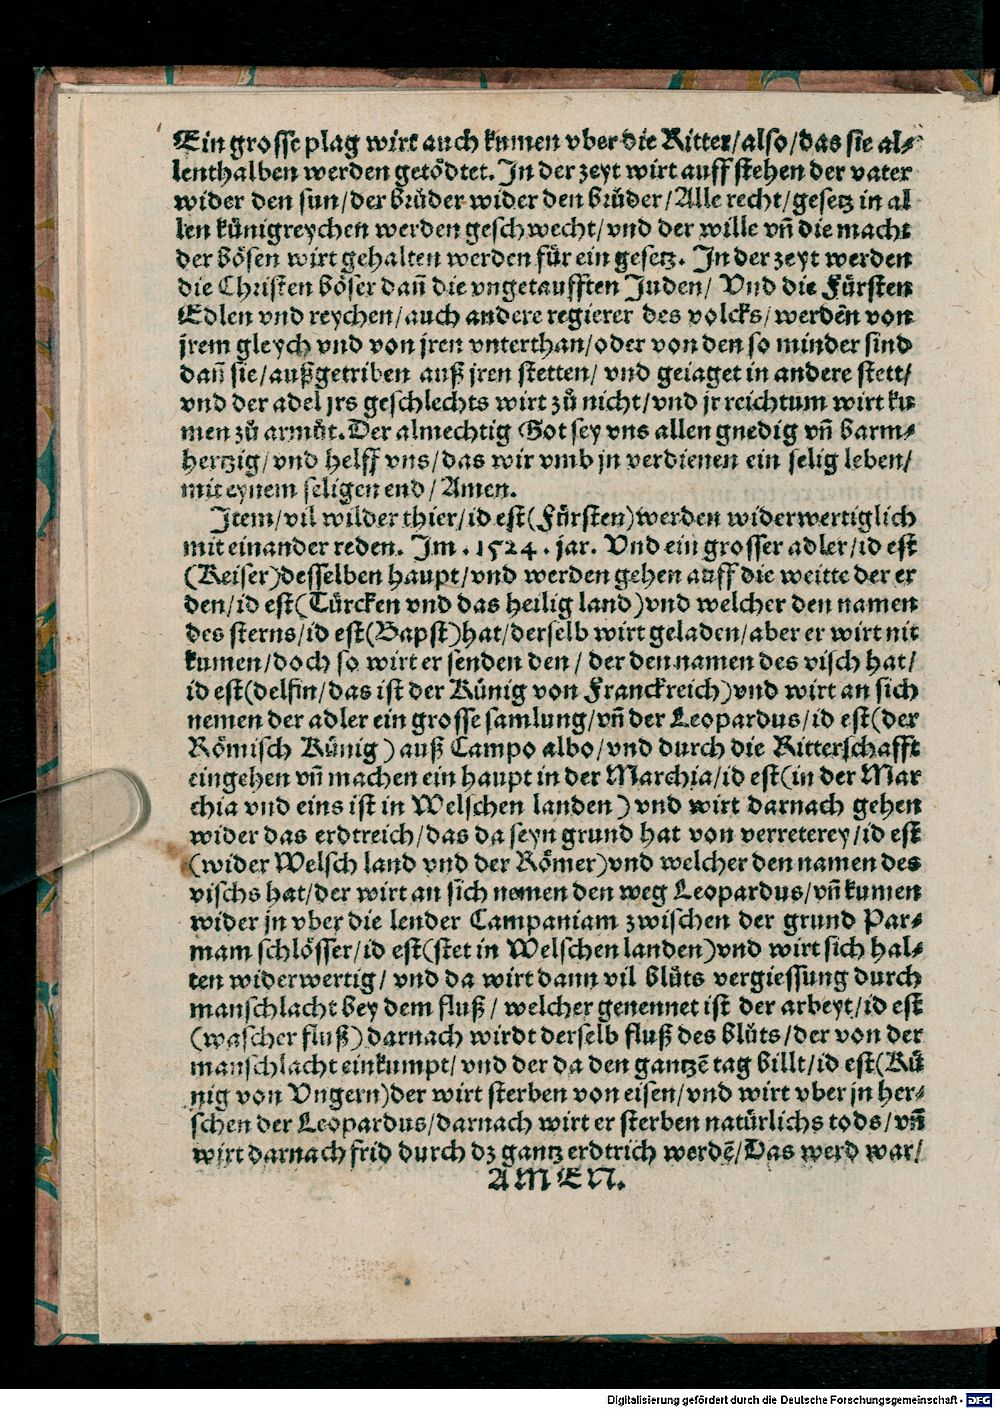 Ein grosse plag wirt auch kumen vber die Ritter/also/das sie al⸗
lenthalben werden getödtet. In der zeyt wirt auff stehen der vater
wider den sun/der brůder wider den brůder/Alle recht/gesetz in al
len künigreychen werden geschwecht/vnd der wille vñ die macht
der bösen wirt gehalten werden für ein gesetz. In der zeyt werden
die Christen böser dañ die vngetaufften Juden/ Vnd die Fürsten
Edlen vnd reychen/auch andere regierer des volcks/werdẽ von
jrem gleych vnd von jren vnterthan/oder von den so minder sind
dañ sie/außgetriben auß jren stetten/ vnd geiaget in andere stett/
vnd der adel jrs geschlechts wirt zů nicht/vnd jr reichtum wirt ku
men zů armůt. Der almechtig Got sey vns allen gnedig vñ barm⸗
hertzig/vnd helff vns/das wir vmb jn verdienen ein selig leben/
mit eynem seligen end/Amen.
Item/vil wilder thier/id est(Fürsten)werden widerwertiglich
mit einander reden. Im . 1524 . jar. Vnd ein grosser adler/id est
(Keiser)desselben haupt/vnd werden gehen auff die weitte der er
den/id est(Türcken vnd das heilig land)vnd welcher den namen
des sterns/id est(Bapst)hat/derselb wirt geladen/aber er wirt nit
kumen/doch so wirt er senden den/ der den namen des visch hat/
id est(delfin/das ist der Künig von Franckreich)vnd wirt an sich
nemen der adler ein grosse samlung/vñ der Leopardus/id est(der
Römisch Künig)auß Campo albo/vnd durch die Ritterschafft
eingehen vñ machen ein haupt in der Marchia/id est(in der Mar
chia vnd eins ist in Welschen landen)vnd wirt darnach gehen
wider das erdtreich/das da seyn grund hat von verreterey/id est
(wider Welsch land vnd der Römer)vnd welcher den namen des
vischs hat/der wirt an sich nemen den weg Leopardus/vñ kumen
wider jn vber die lender Campaniam zwischen der grund Par⸗
mam schlösser/id est(stet in Welschen landen)vnd wirt sich hal⸗
ten widerwertig/ vnd da wirt dann vil blůts vergiessung durch
manschlacht bey dem fluß/ welcher genennet ist der arbeyt/id est
(wascher fluß)darnach wirdt derselb fluß des blůts/der von der
manschlacht einkumpt/ vnd der da den gantzẽ tag billt/id est(Kü
nig von Vngern)der wirt sterben von eisen/vnd wirt vber jn her⸗
schen der Leopardus/darnach wirt er sterben natürlichs tods/vñ
wirt darnach frid durch dz gantz erdtrich werdẽ/Das werd war/
AMEN.
Digitalisierung gefördert durch die Deutsche Forschungsgemeinschaft - DFG